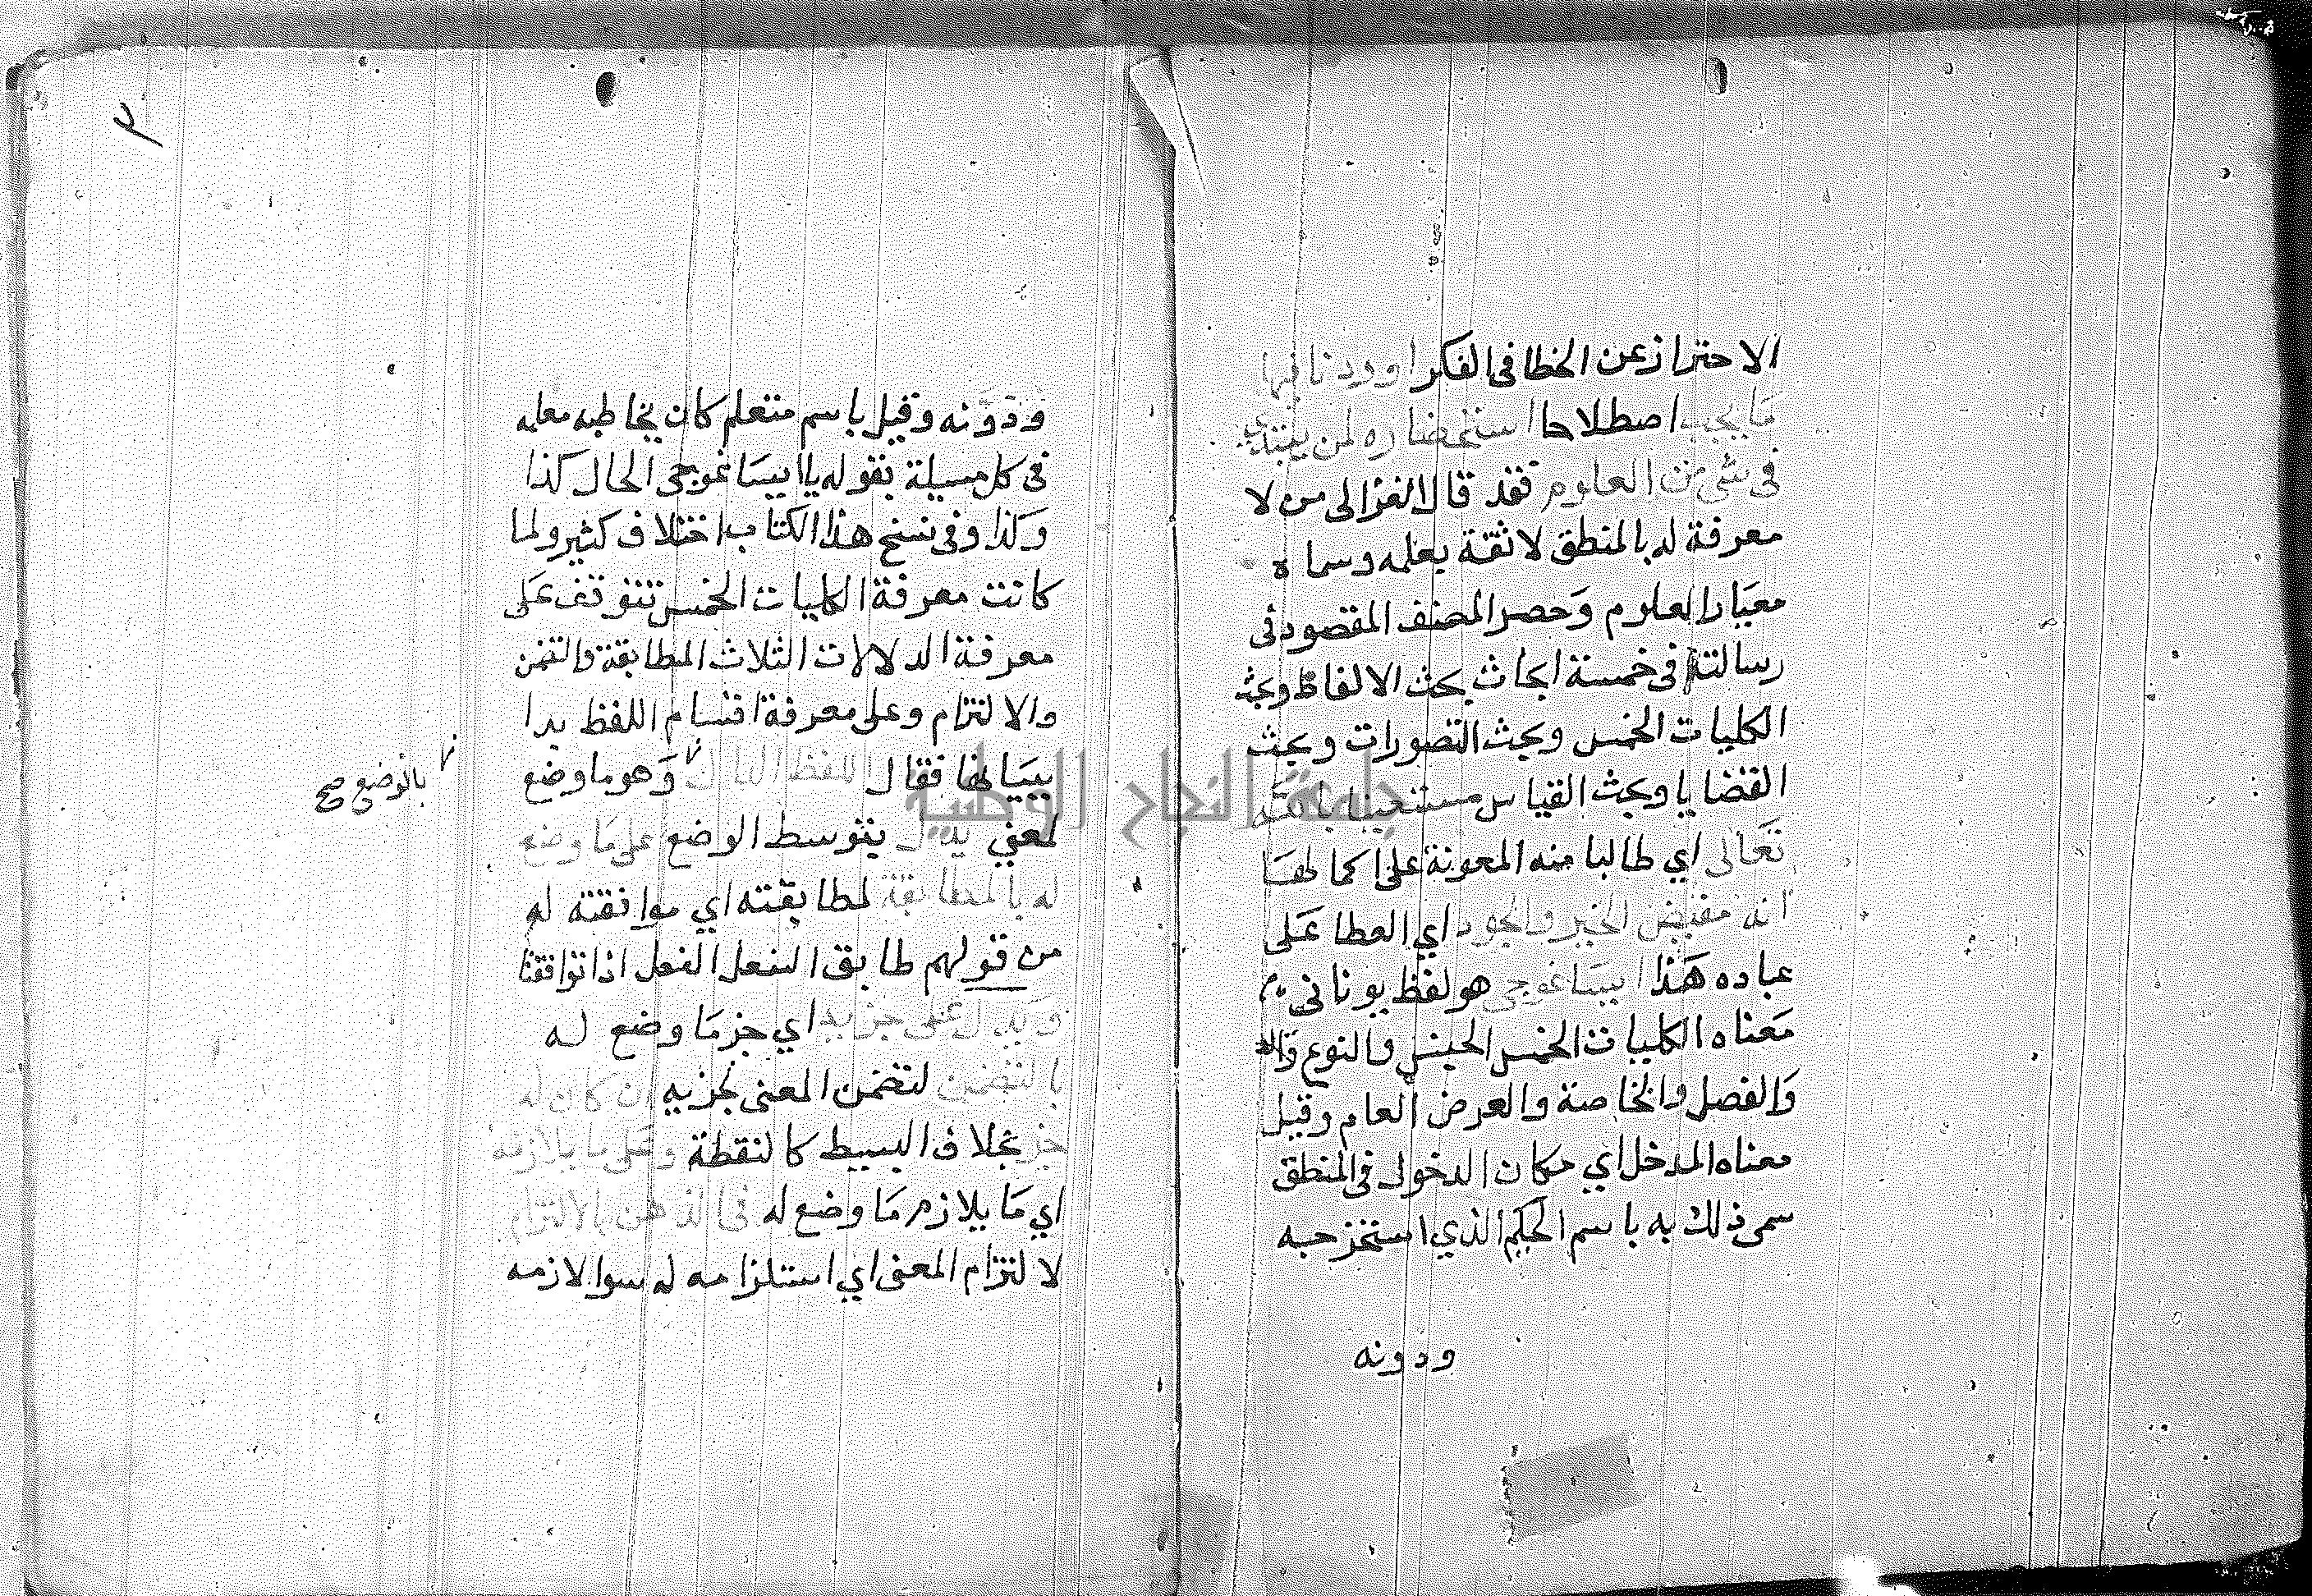 الاحتراز عن الخطا فى الفكر اوردنا فيها
ما يجب اصطلاحا استحضاره لمن يبتدي
فى شى من العلوم فقد قال الغزالى من لا
معرفة له بالمنطق لا ثقة بعلمه وسماه
معيار العلوم وحصر المصنف المقصود فى
رسالته فى خمسة ابحاث بحث الالفاظ وبحث
الكليات الخمس وبحث التصورات وبحث
القضايا وبحث القياس مستعينا بالله
تعالى اي طالبا منه المعونة على اكمالها
انه مفيض الخير والجود اي العطا على
عباده هذا ايساغوجى هو لفظ يونانى
معناه الكليات الخمس الجنس والنوع
والفصل والخاصة والعرض العام وقيل
معناه المدخل اي مكان الدخول فى المنطق
سمى ذلك به باسم الحكيم الذي استخرجه
ودونه
٣
ودونه وقيل باسم متعلم كان يخاطبه معلمه
فى كل مسيلة بقوله يا ايساغوجى الحال كذا
وكذا وفى نسخ هذا الكتاب اختلاف كثير ولما
كانت معرفة الكليات الخمس تتوقف على
معرفة الدلالات الثلاث المطابقة والتضمن
والالتزام وعلى معرفة اقسام اللفظ بدا
ببيانها فقال اللفظ الدال وهو ما وضع
بالوضع صح
لمعنى يدل بتوسط الوضع على ما وضع
له بالمطابقة لمطابقته اي موافقته له
من قولهم طابق النعل النعل اذا توافقتا
ويدل على جزيه اي جز ما وضع له
بالتضمن لتضمن المعنى لجزيه ان كان له
جز بخلاف البسيط كالنقطة وعلى ما يلازمه
اي ما يلازم ما وضع له فى الذهن بالالتزام
لالتزام المعنى اي استلزامه له سوا لازمه
جامعة النجاح الوطنية